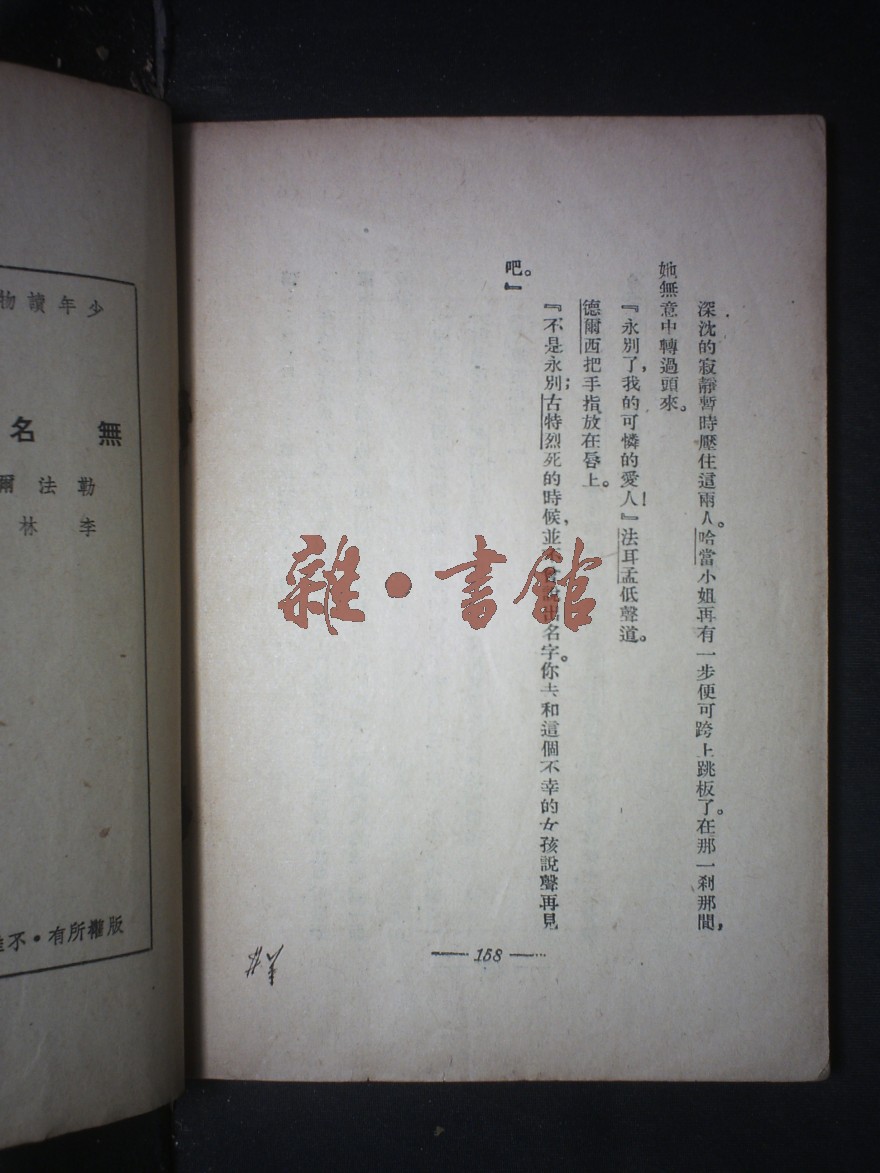 深沈的寂靜暫時壓住這兩人。哈當小姐再有一步便可跨上跳板了。在那一剎那間，
她無意中轉過頭來。
『永別了，我的可憐的愛人！』法耳孟低聲道。
德爾西把手指放在唇上。
『不是永別；古特烈死的時候，並名字。你去和這個不幸的女孩說聲再見
吧。』
158
雜·書館
少年讀物
無名
勒法爾
李林
版權所有·不